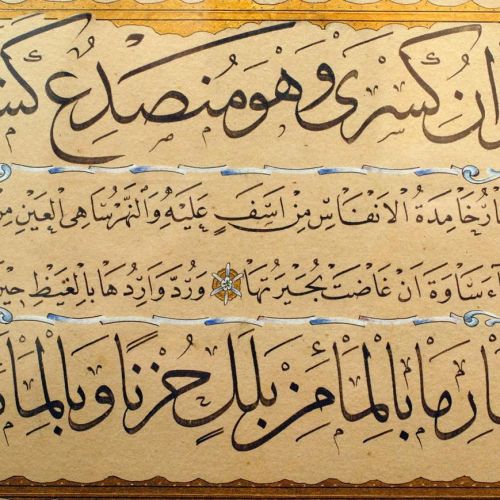 انُ كِسْرٰى وَهُوَ مُنْصَدِعٌ
ارُ خَامِدَةُ الْاَنْفَاسِ مِنْ اَسَفٍ عَلَيْهِ وَالنَّهْرُ سَاهِى الْعَيْنِ مِنْ
ءَ سَاوَةَ اَنْ غَاضَتْ بُحَيْرَتُهَا وَرُدَّ وَارِدُهَا بِالْغَيْظِ حِينَ
ارِ مَا بِالْمَاءِ مِنْ بَلَلٍ حُزْنًا وَبِالْمَاءِ